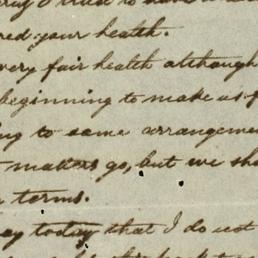 to have a
red your health.
very fair health although
beginning to make us f
ng to some arrangemen
matters go, but we sha
terms.
ay today that I do not